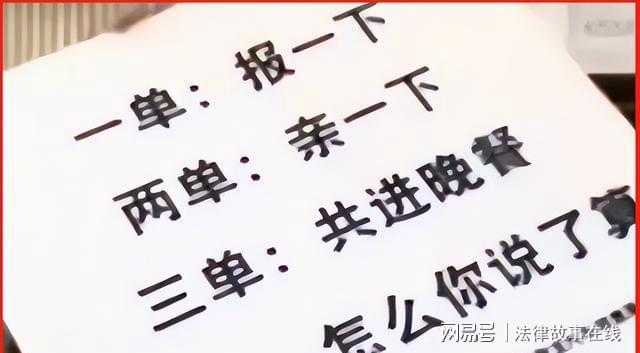 一单：报一下
两单：亲一下
三单：共进晚餐
怎么你说了
网易号 | 法律故事在线